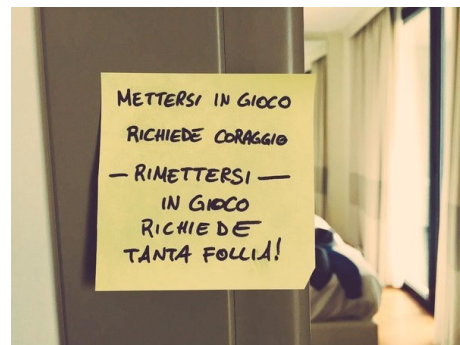 METTERSI IN GIOCO
RICHIEDE CORAGGIO
— RIMETTERSI —
IN GIOCO
RICHIEDE
TANTA FOLLIA!